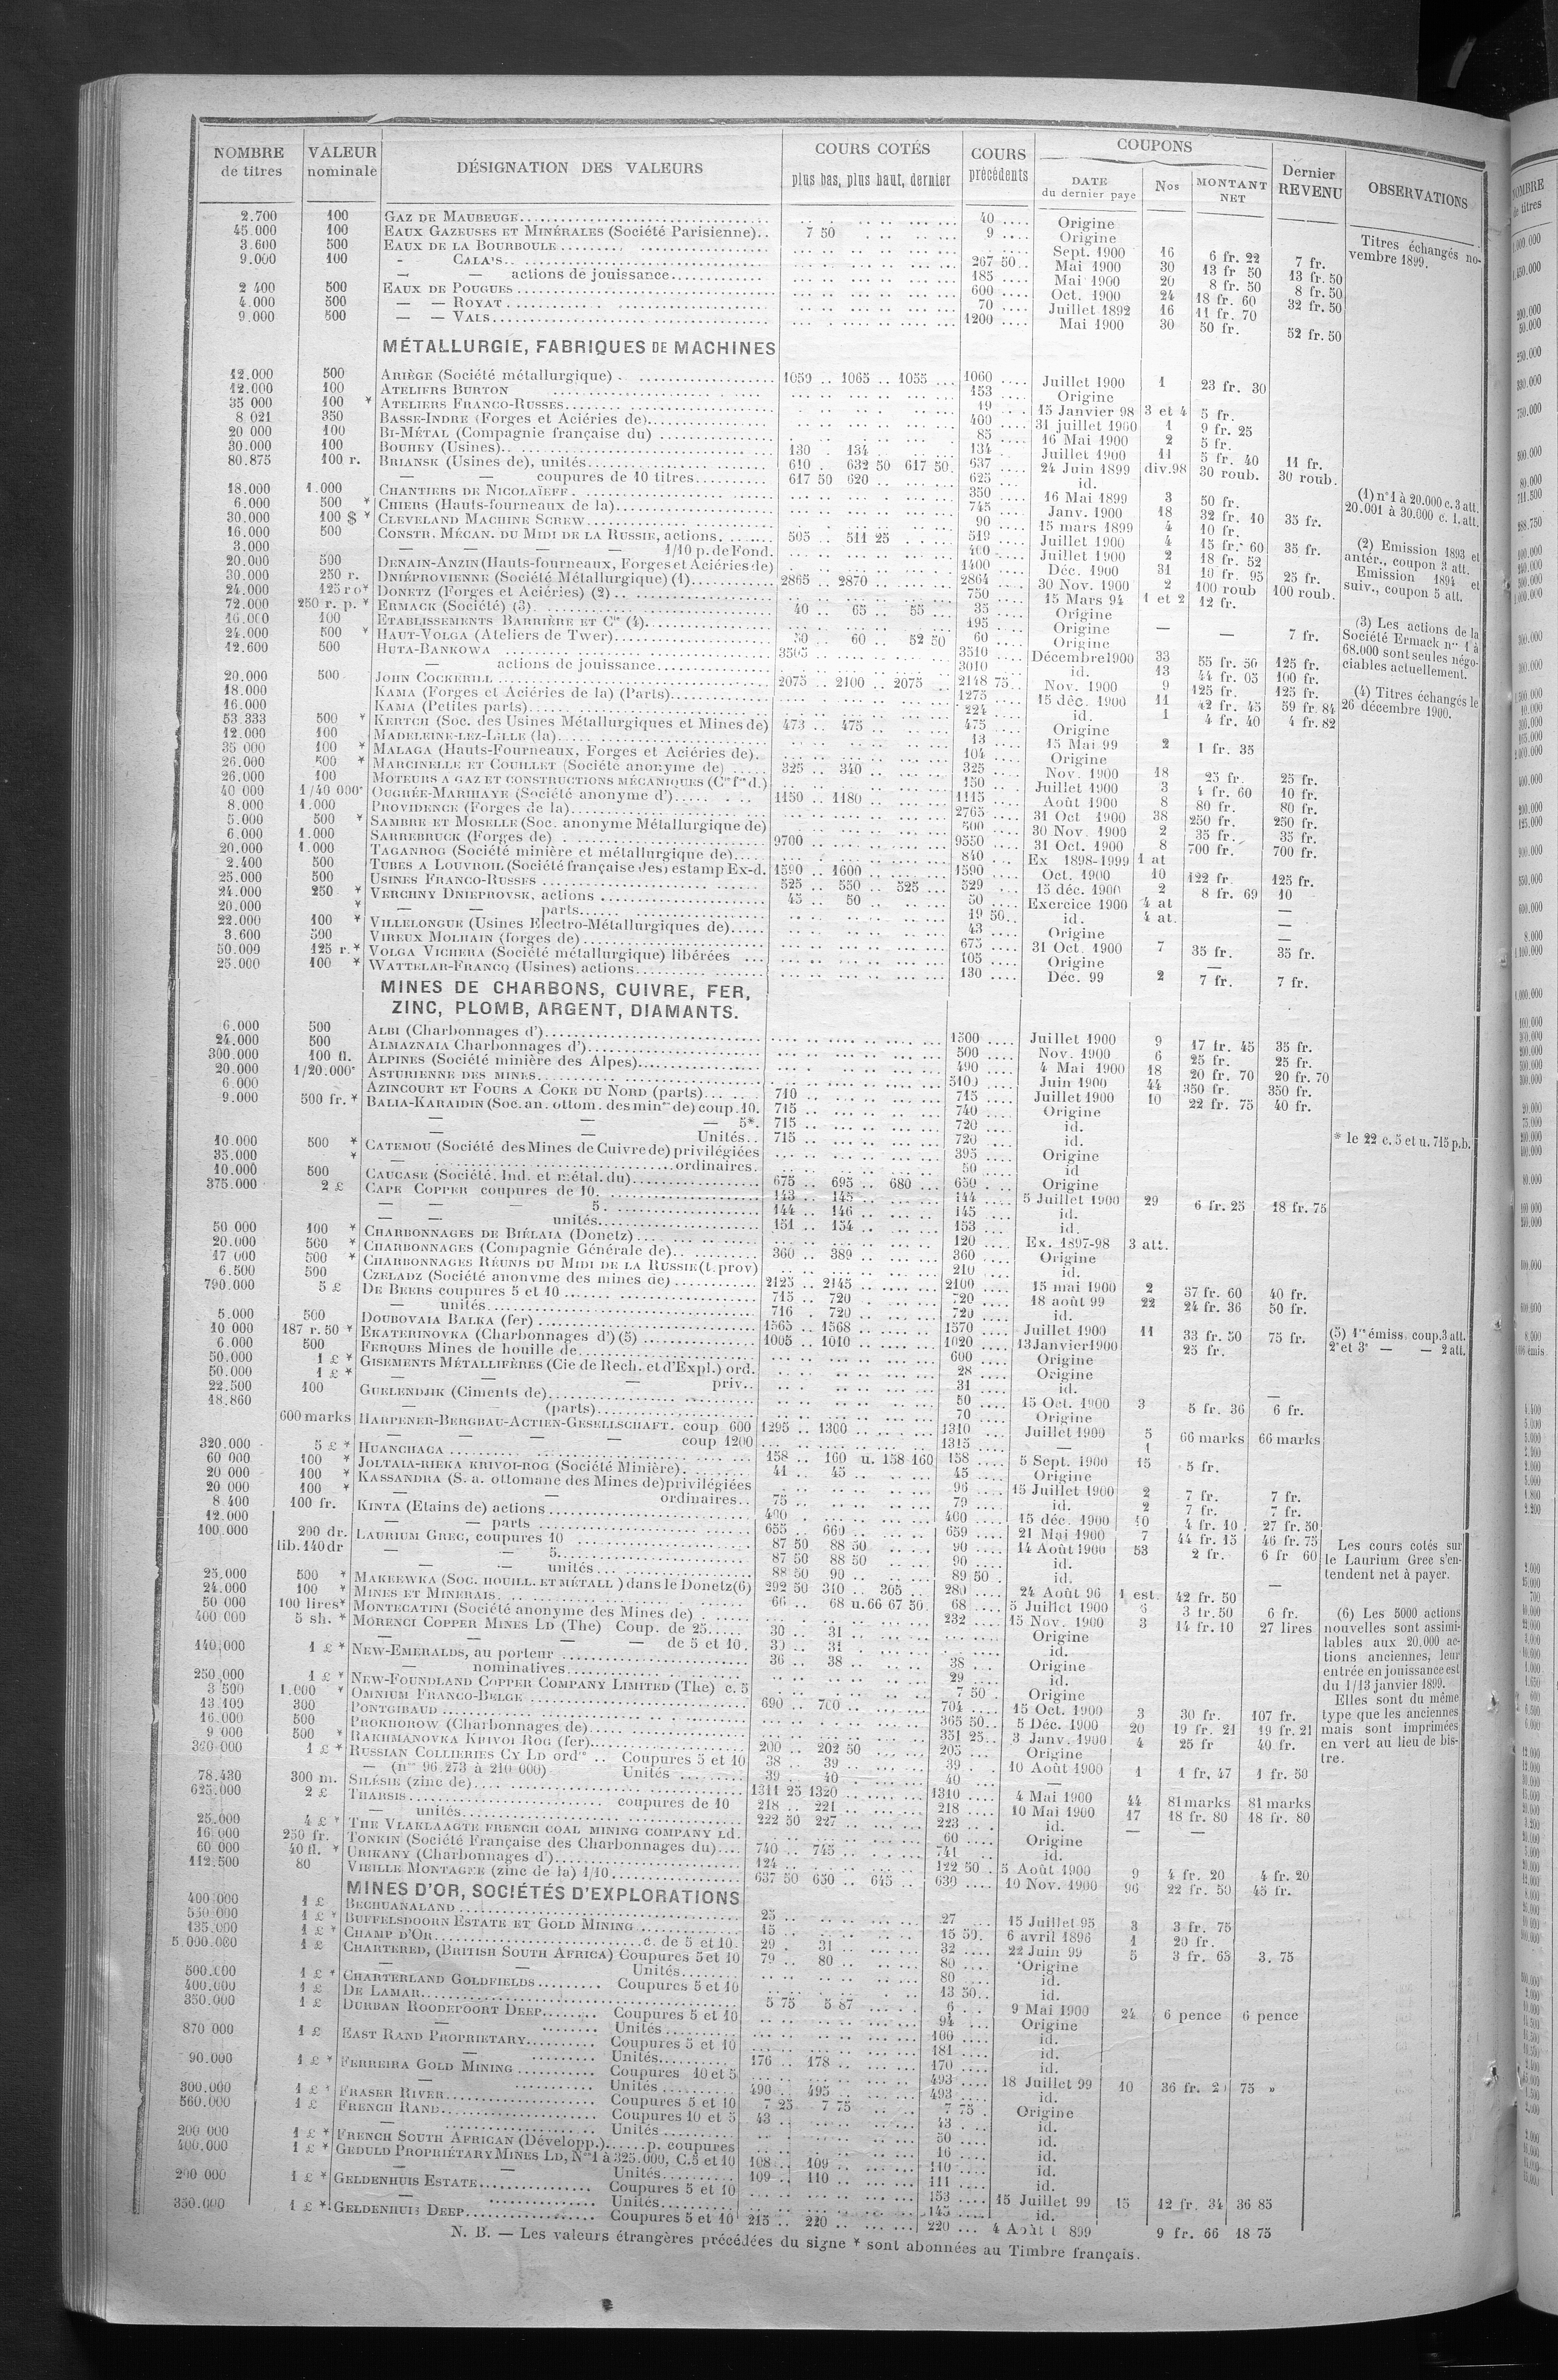 NOMBRE de titres | VALEUR nominale | DÉSIGNATION DES VALEURS | COURS COTÉS plus bas, plus haut, dernier | COURS précédents | COUPONS DATE du dernier paye | Nos | MONTANT NET | Dernier REVENU | OBSERVATIONS
2.700 100 GAZ DE MAUBEUGE 40 Origine
45.000 100 EAUX GAZEUSES ET MINÉRALES (Société Parisienne) 7 50 9 Origine
3.600 500 EAUX DE LA BOURBOULE Sept. 1900 16 6 fr. 22 7 fr.
9.000 100 - CALA'S 267 50 Mai 1900 30 13 fr 50 13 fr. 50
— — actions de jouissance 185 Mai 1900 20 8 fr. 50 8 fr. 50
2 400 500 EAUX DE POUGUES 600 Oct. 1900 24 18 fr. 60 32 fr. 50
4.000 500 — — ROYAT 70 Juillet 1892 16 11 fr. 70
9.000 500 — — VALS 1200 Mai 1900 30 50 fr. 52 fr. 50
Titres échangés novembre 1899.
MÉTALLURGIE, FABRIQUES DE MACHINES
12.000 500 ARIÈGE (Société métallurgique) 1050 1065 1055 1060 Juillet 1900 1 23 fr. 30
12.000 100 ATELIERS BURTON 153 Origine
35 000 100 * ATELIERS FRANCO-RUSSES 19 15 Janvier 98 3 et 4 5 fr.
8 021 350 BASSE-INDRE (Forges et Aciéries de) 400 31 juillet 1900 1 9 fr. 25
20 000 100 BI-MÉTAL (Compagnie française du) 85 16 Mai 1900 2 5 fr.
30.000 100 BOUHEY (Usines) 130 134 134 Juillet 1900 11 5 fr. 40 11 fr.
80.875 100 r. BRIANSK (Usines de), unités 610 632 50 617 50 637 24 Juin 1899 div.98 30 roub. 30 roub.
— — coupures de 10 titres 617 50 620 625 id.
18.000 1.000 CHANTIERS DE NICOLAÏEFF 350 16 Mai 1899 3 50 fr.
6.000 500 * CHIERS (Hauts-fourneaux de la) 745 Janv. 1900 18 32 fr. 10 35 fr.
30.000 100 $ * CLEVELAND MACHINE SCREW 90 15 mars 1899 4 10 fr.
16.000 500 CONSTR. MÉCAN. DU MIDI DE LA RUSSIE, actions 505 511 25 519 Juillet 1900 4 15 fr. 60 35 fr.
3.000 — — — — 1/10 p. de Fond. 400 Juillet 1900 2 18 fr. 52
20.000 500 DENAIN-ANZIN (Hauts-fourneaux, Forges et Aciéries de) 1400 Déc. 1900 31 10 fr. 95 25 fr.
30.000 250 r. DNIÉPROVIENNE (Société Métallurgique) (1) 2865 2870 2864 30 Nov. 1900 2 100 roub 100 roub.
24.000 125 ro * DONETZ (Forges et Aciéries) (2) 750 15 Mars 94 1 et 2 12 fr.
72.000 250 r. p. * ERMACK (Société) (3) 40 65 55 35 Origine
16.000 100 ETABLISSEMENTS BARRIÈRE ET Cie (4) 195 Origine — — 7 fr.
24.000 500 * HAUT-VOLGA (Ateliers de Twer) 50 60 52 50 60 Origine
12.600 500 HUTA-BANKOWA 3505 3510 Décembre 1900 33 55 fr. 50 125 fr.
— actions de jouissance 3010 id. 13 44 fr. 05 100 fr.
20.000 500 JOHN COCKERILL 2075 2100 2075 2148 75 Nov. 1900 9 125 fr. 125 fr.
18.000 KAMA (Forges et Aciéries de la) (Parts) 1275 15 déc. 1900 11 42 fr. 45 59 fr. 84
16.000 KAMA (Petites parts) 224 id. 1 4 fr. 40 4 fr. 82
53 333 500 * KERTCH (Soc. des Usines Métallurgiques et Mines de) 473 475 475 Origine
12.000 100 MADELEINE-LEZ-LILLE (la) 13 15 Mai 99 2 1 fr. 35
35 000 100 * MALAGA (Hauts-Fourneaux, Forges et Aciéries de) 104 Origine
26.000 500 * MARCINELLE ET COUILLET (Société anonyme de) 325 340 325 Nov. 1900 18 25 fr. 25 fr.
26.000 100 MOTEURS A GAZ ET CONSTRUCTIONS MÉCANIQUES (Cie fse d.) 150 Juillet 1900 3 4 fr. 60 10 fr.
40 000 1/40 000e OUGRÉE-MARIHAYE (Société anonyme d') 1150 1180 1115 Août 1900 8 80 fr. 80 fr.
8.000 1.000 PROVIDENCE (Forges de la) 2765 31 Oct 1900 38 250 fr. 250 fr.
5.000 500 * SAMBRE ET MOSELLE (Soc. anonyme Métallurgique de) 500 30 Nov. 1900 2 35 fr. 35 fr.
6.000 1.000 SARREBRUCK (Forges de) 9700 9550 31 Oct. 1900 8 700 fr. 700 fr.
20.000 1.000 TAGANROG (Société minière et métallurgique de) 840 Ex 1898-1999 1 at
2.400 500 TUBES A LOUVROIL (Société française des) estamp Ex-d. 1590 1600 1590 Oct. 1900 10 122 fr. 125 fr.
25.000 500 USINES FRANCO-RUSSES 525 550 525 529 15 déc. 1900 2 8 fr. 69 10
24.000 250 * VERCHNY DNIEPROVSK, actions 45 50 50 Exercice 1900 4 at —
20.000 * — — parts 19 50 id. 4 at. —
22.000 100 * VILLELONGUE (Usines Electro-Métallurgiques de) 43 Origine —
3.600 500 VIREUX MOLHAIN (forges de) 675 31 Oct. 1900 7 35 fr. 35 fr.
50.000 125 r. * VOLGA VICHERA (Société métallurgique) libérées 105 Origine —
25.000 100 * WATTELAR-FRANCQ (Usines) actions 130 Déc. 99 2 7 fr. 7 fr.
(1) nos 1 à 20.000 c. 3 att. 20.001 à 30.000 c. 1. att.
(2) Emission 1893 et antér., coupon 3 att. Emission 1894 et suiv., coupon 5 att.
(3) Les actions de la Société Ermack nos 1 à 68.000 sont seules négociables actuellement.
(4) Titres échangés le 26 décembre 1900.
MINES DE CHARBONS, CUIVRE, FER,
ZINC, PLOMB, ARGENT, DIAMANTS.
6.000 500 ALBI (Charbonnages d') 1500 Juillet 1900 9 17 fr. 45 35 fr.
24.000 500 ALMAZNAIA Charbonnages d') 500 Nov. 1900 6 25 fr. 25 fr.
300.000 100 fl. ALPINES (Société minière des Alpes) 490 4 Mai 1900 18 20 fr. 70 20 fr. 70
20.000 1/20.000e ASTURIENNE DES MINES 5100 Juin 1900 44 350 fr. 350 fr.
6.000 AZINCOURT ET FOURS A COKE DU NORD (parts) 710 715 Juillet 1900 10 22 fr. 75 40 fr.
9.000 500 fr. * BALIA-KARAIDIN (Soc. an. ottom. des mines de) coup. 10. 715 740 Origine
— — — 5*. 715 720 id.
— — Unités 715 720 id.
* le 22 c. 5 et u. 715 p.b.
10.000 500 * CATEMOU (Société des Mines de Cuivre de) privilégiées 395 Origine
35.000 * — ordinaires. 50 id
10.000 500 CAUCASE (Société. Ind. et métal. du) 675 695 680 650 Origine
375.000 2 £ CAPE COPPER coupures de 10. 143 145 144 5 Juillet 1900 29 6 fr. 25 18 fr. 75
— — 5. 144 146 145 id.
— — unités 151 154 153 id.
50 000 100 * CHARBONNAGES DE BIÉLAIA (Donetz) 120 Ex. 1897-98 3 att.
20.000 500 * CHARBONNAGES (Compagnie Générale de) 360 389 360 Origine
17 000 500 * CHARBONNAGES RÉUNIS DU MIDI DE LA RUSSIE (t. prov) 210 id.
6.500 500 CZELADZ (Société anonyme des mines de) 2125 2145 2100 15 mai 1900 2 37 fr. 60 40 fr.
790.000 5 £ DE BEERS coupures 5 et 10 715 720 720 18 août 99 22 24 fr. 36 50 fr.
— unités 716 720 720 id.
5.000 500 DOUBOVAIA BALKA (fer) 1565 1568 1570 Juillet 1900 11 33 fr. 50 75 fr.
10 000 187 r. 50 * EKATERINOVKA (Charbonnages d') (5) 1005 1010 1020 13 Janvier 1900 25 fr.
6.000 500 FERQUES Mines de houille de 600 Origine
50.000 1 £ * GISEMENTS MÉTALLIFÈRES (Cie de Rech. et d'Expl.) ord. 28 Origine
50.000 1 £ * — — priv. 31 id.
22.500 100 GUELENDJIK (Ciments de) 50 15 Oct. 1900 3 5 fr. 36 6 fr.
18.860 — (parts) 70 Origine
600 marks HARPENER-BERGBAU-ACTIEN-GESELLSCHAFT. coup 600 1295 1300 1310 Juillet 1900 5 66 marks 66 marks
— — — coup 1200 1315 — 1
(5) 1re émiss. coup. 3 att. 2e et 3e — — 2 att.
320.000 5 £ * HUANCHACA 158 160 u. 158 160 158 5 Sept. 1900 15 5 fr.
60 000 100 * JOLTAIA-RIEKA KRIVOI-ROG (Société Minière) 41 45 45 Origine
20 000 100 * KASSANDRA (S. a. ottomane des Mines de) privilégiées 96 15 Juillet 1900 2 7 fr. 7 fr.
20 000 100 * — — ordinaires 75 79 id. 2 7 fr. 7 fr.
8.400 100 fr. KINTA (Etains de) actions 400 400 15 déc. 1900 10 4 fr. 10 27 fr. 50
12.000 — — parts 655 660 659 21 Mai 1900 7 44 fr. 15 46 fr. 75
100.000 200 dr. lib. 140 dr LAURIUM GREC, coupures 10 87 50 88 50 90 14 Août 1900 53 2 fr. 6 fr 60
— — 5. 87 50 88 50 90 id.
— — unités 88 50 90 89 50 id.
25.000 500 * MAKEEWKA (SOC. HOUILL. ET MÉTALL) dans le Donetz (6) 292 50 310 305 280 24 Août 96 1 est. 42 fr. 50
24.000 100 * MINES ET MINERAIS 66 68 u. 66 67 50 68 5 Juillet 1900 6 3 fr. 50 6 fr.
50 000 100 lires * MONTECATINI (Société anonyme des Mines de) 232 15 Nov. 1900 3 14 fr. 10 27 lires
400 000 5 sh. * MORENCI COPPER MINES LD (The) Coup. de 25 30 31 Origine
— — — de 5 et 10. 30 31 id.
140,000 1 £ * NEW-EMERALDS, au porteur 36 38 38 Origine
— nominatives 29 id.
250.000 1 £ * NEW-FOUNDLAND COPPER COMPANY LIMITED (The) c. 5 7 50 Origine
3 500 1.000 * OMNIUM FRANCO-BELGE 690 700 704 15 Oct. 1900 3 30 fr. 107 fr.
13.109 300 PONTGIBAUD 365 50 5 Déc. 1900 20 19 fr. 21 19 fr. 21
16.000 500 PROKHOROW (Charbonnages de) 351 25 3 Janv. 1900 4 25 fr 40 fr.
9 000 500 * RAKHMANOVKA KRIVOI ROG (fer) 200 202 50 205 Origine
360 000 1 £ * RUSSIAN COLLIERIES CY LD ordres Coupures 5 et 10 38 39 39 10 Août 1900 1 1 fr. 47 1 fr. 50
— (nos 96.273 à 210 000) Unités 39 40 40 —
78.430 300 m. SILÉSIE (zinc de) 1311 25 1320 1310 4 Mai 1900 44 81 marks 81 marks
625.000 2 £ THARSIS coupures de 10 218 221 218 10 Mai 1900 17 18 fr. 80 18 fr. 80
— unités 222 50 227 223 id. — —
25.000 4 £ * THE VLAKLAAGTE FRENCH COAL MINING COMPANY Ld. 60 Origine
16.000 250 fr. TONKIN (Société Française des Charbonnages du) 740 745 741 id.
60 000 40 fl. * URIKANY (Charbonnages d') 124 122 50 5 Août 1900 9 4 fr. 20 4 fr. 20
112.500 80 VIEILLE MONTAGNE (zinc de la) 1/10 637 50 650 645 630 10 Nov. 1900 96 22 fr. 50 45 fr.
Les cours cotés sur le Laurium Grec s'entendent net à payer.
(6) Les 5000 actions nouvelles sont assimilables aux 20.000 actions anciennes, leur entrée en jouissance est du 1/13 janvier 1899.
Elles sont du même type que les anciennes mais sont imprimées en vert au lieu de bistre.
MINES D'OR, SOCIÉTÉS D'EXPLORATIONS
400 000 1 £ BECHUANALAND 25 27 15 Juillet 95 3 3 fr. 75
550 000 1 £ * BUFFELSDOORN ESTATE ET GOLD MINING 15 15 50. 6 avril 1896 1 20 fr.
135.000 1 £ * CHAMP D'OR c. de 5 et 10. 29 31 32 22 Juin 99 5 3 fr. 65 3. 75
5.000.000 1 £ CHARTERED, (BRITISH SOUTH AFRICA) Coupures 5 et 10 79 80 80 Origine
— — Unités 80 id.
500.000 1 £ * CHARTERLAND GOLDFIELDS Coupures 5 et 10 13 50 id.
400.000 1 £ DE LAMAR 5 75 5 87 6 9 Mai 1900 24 6 pence 6 pence
350.000 1 £ DURBAN ROODEPOORT DEEP Coupures 5 et 10 94 Origine
— Unités 100 id.
870 000 1 £ EAST RAND PROPRIETARY Coupures 5 et 10 181 id.
— Unités 176 178 170 id.
90.000 1 £ * FERREIRA GOLD MINING Coupures 10 et 5 493 18 Juillet 99 10 36 fr. 75 »
— Unités 490 495 493 id.
300.000 1 £ * FRASER RIVER Coupures 5 et 10 7 25 7 75 7 75 Origine
560.000 1 £ FRENCH RAND Coupures 10 et 5 43 43 id.
— Unités 50 id.
200 000 1 £ * FRENCH SOUTH AFRICAN (Développ.) p. coupures 16 id.
400.000 1 £ * GEDULD PROPRIÉTARY MINES LD, Nos 1 à 325.000, C. 5 et 10 108 109 110 id.
— — Unités 109 110 111 id.
200 000 1 £ * GELDENHUIS ESTATE Coupures 5 et 10 153 15 Juillet 99 15 12 fr. 34 36 85
— Unités 145 id.
350.000 1 £ * GELDENHUIS DEEP Coupures 5 et 10 215 220 220 4 Août 899 9 fr. 66 18 75
N. B. — Les valeurs étrangères précédées du signe * sont abonnées au Timbre français.